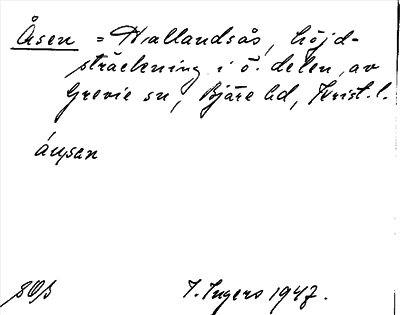 Åsen = Hallandsås, höjd-
sträckning i ö. delen av
Grevie sn, Bjäre hd, Krist. l.
áusen
I. Ingers 1947.